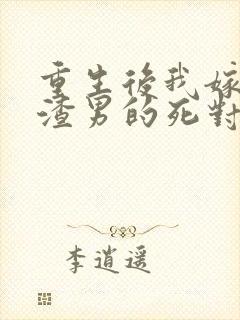 重生後我嫁
渣男的死對
李逍遥